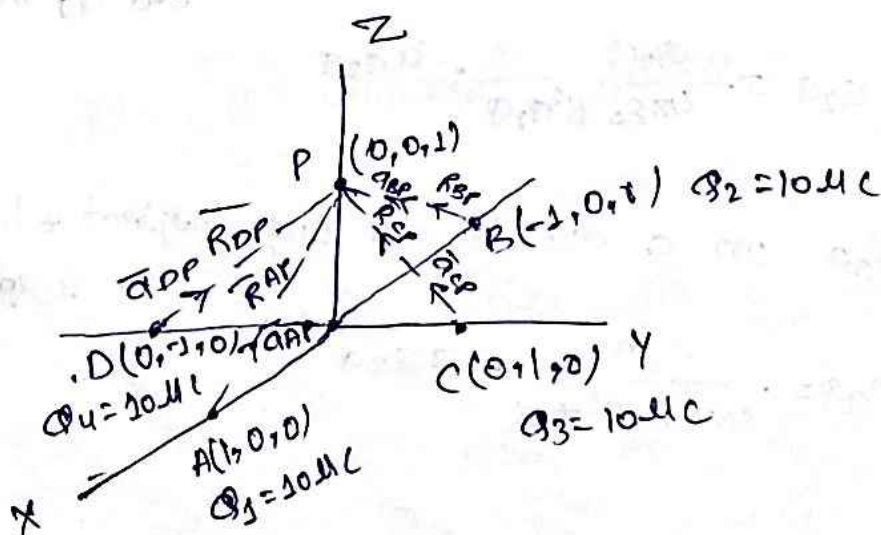 Z
P (0,0,1)
a̅BP R̅BP
B(-1,0,0) Q2 = 10 µC
R̅DP R̅CP
a̅DP R̅AP a̅CP
D(0,-1,0) a̅AP
C(0,1,0) Y
Q4 = 10 µC
Q3 = 10 µC
A(1,0,0)
Q1 = 10 µC
X